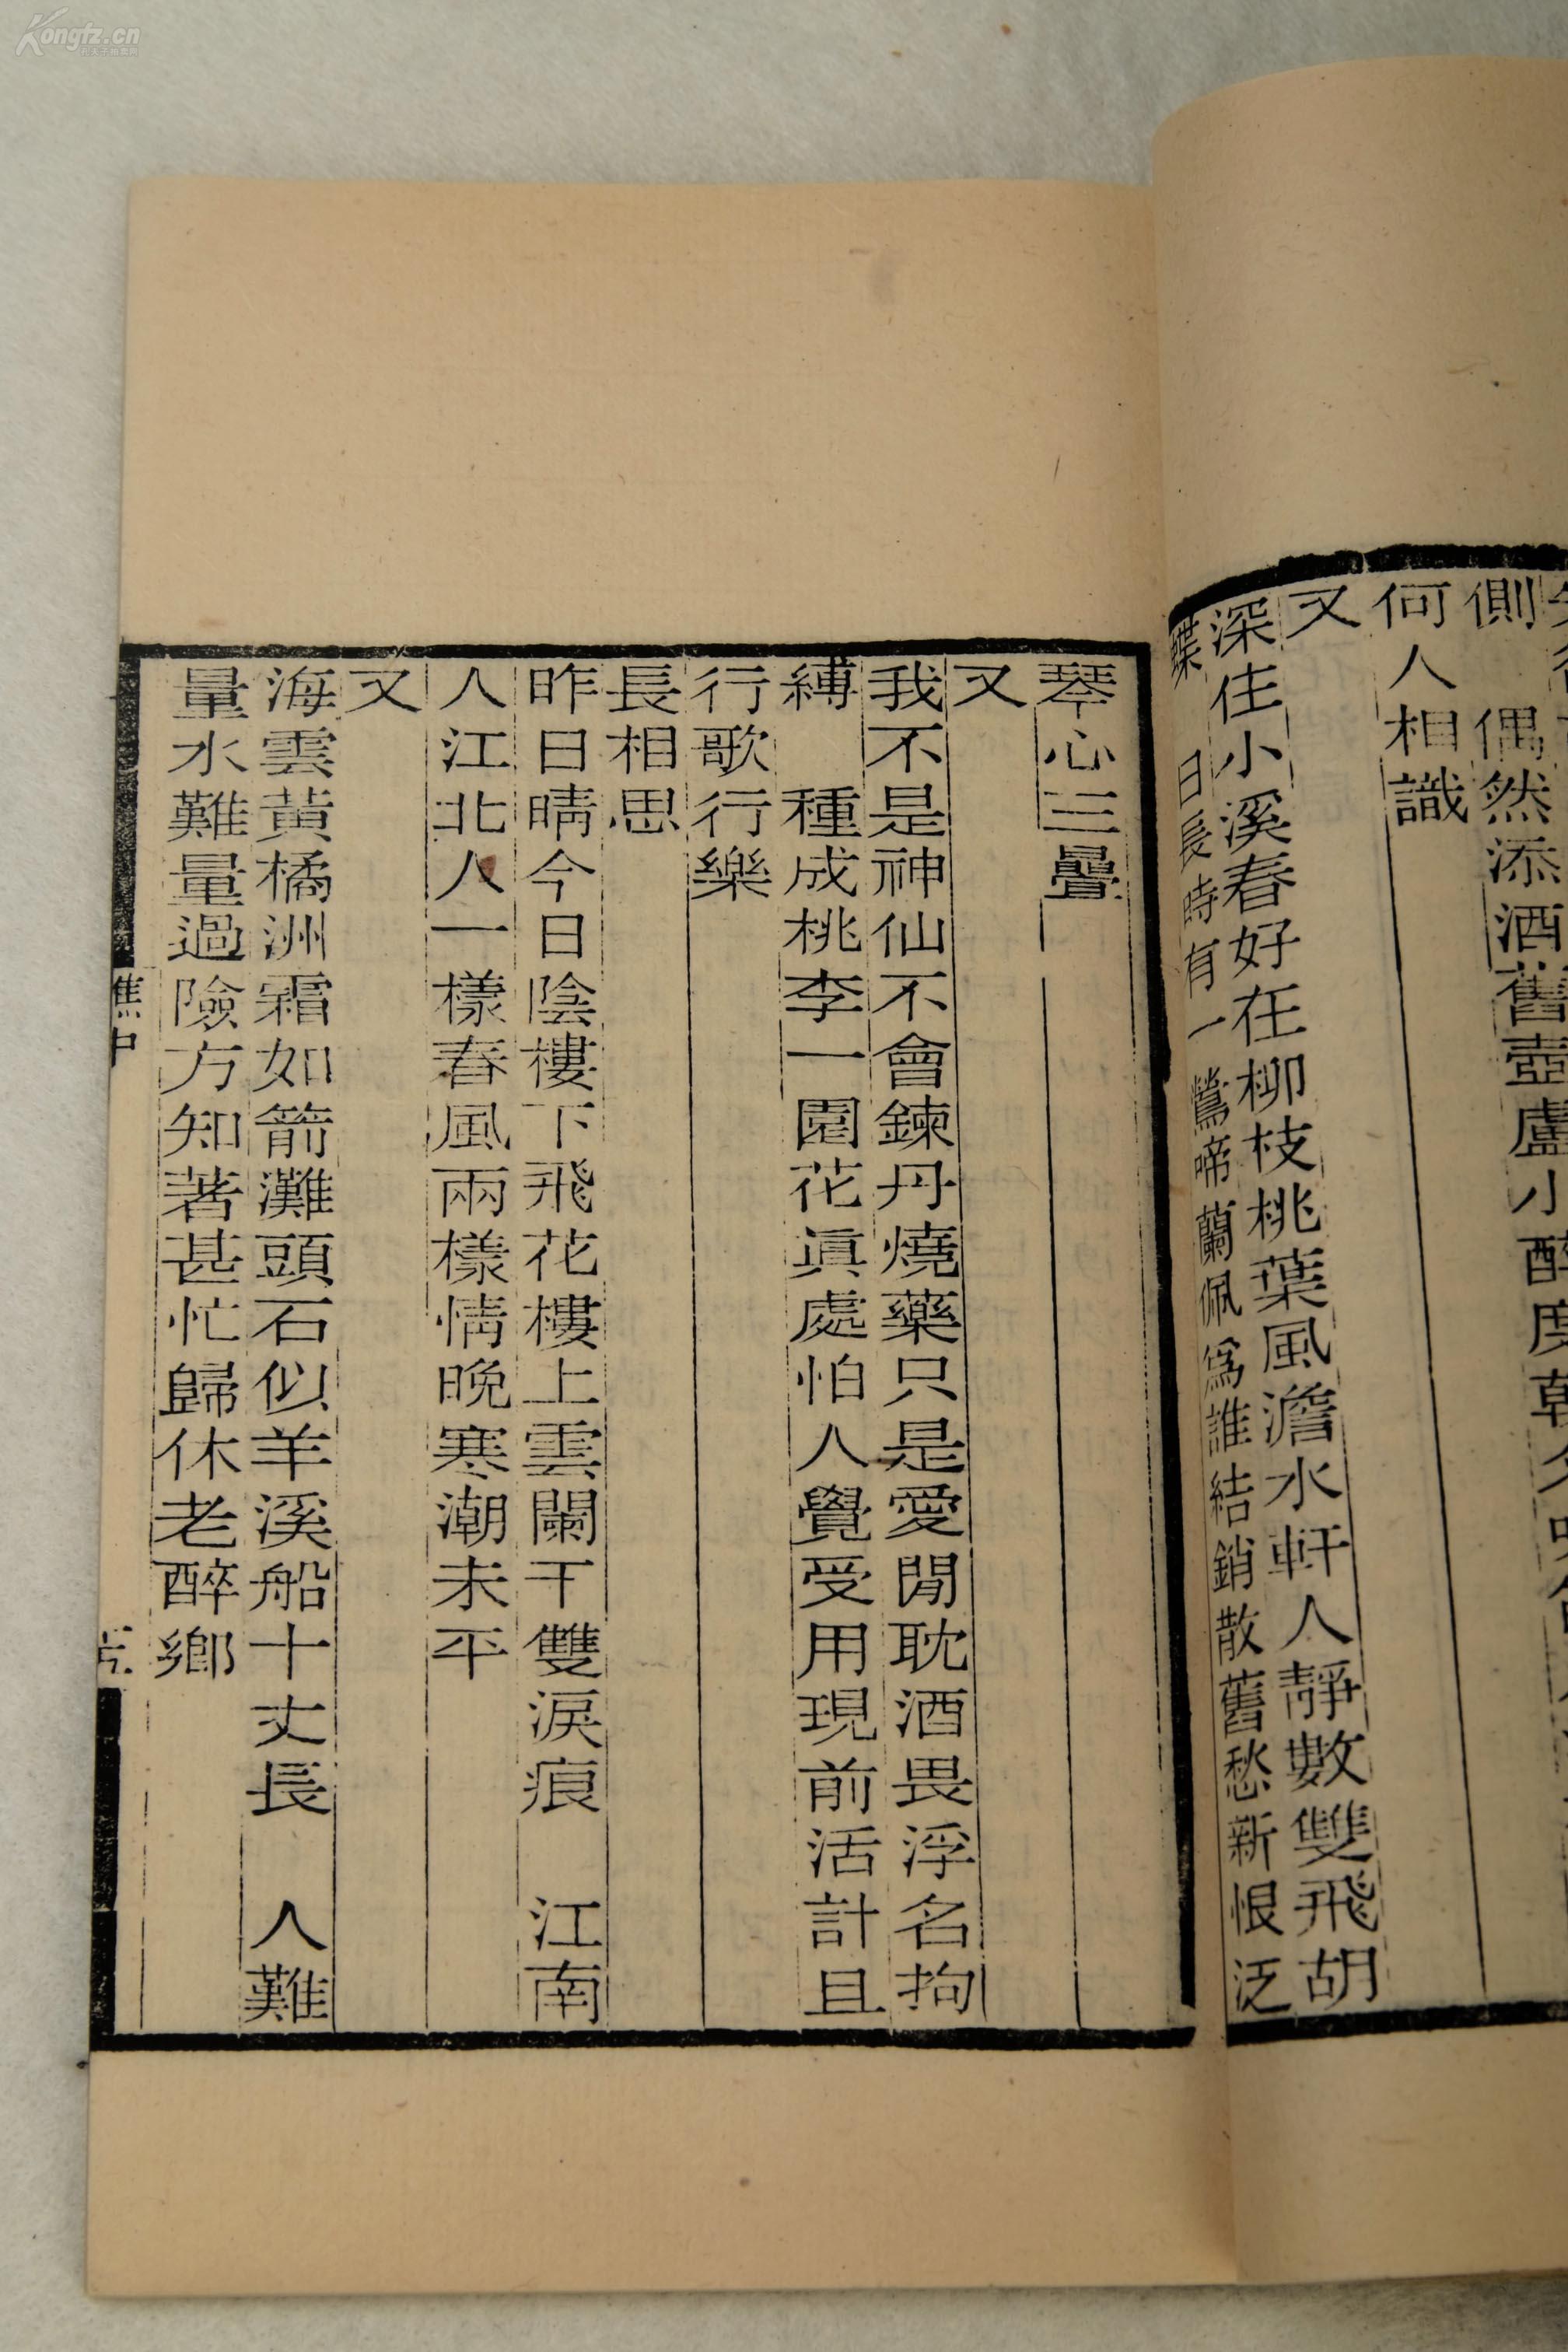 側　偶然添酒舊壺盧小醉度朝
何人相識
又
深住小溪春好在柳枝桃葉風澹水軒人靜數雙飛胡
蝶　日長時有一鶯啼蘭佩爲誰結銷散舊愁新恨泛
琴心三疊
又
我不是神仙不會鍊丹燒藥只是愛閒耽酒畏浮名拘
縛　種成桃李一園花眞處怕人覺受用現前活計且
行歌行樂
長相思
昨日晴今日陰樓下飛花樓上雲闌干雙淚痕　江南
人江北人一樣春風兩樣情晚寒潮未平
又
海雲黃橘洲霜如箭灘頭石似羊溪船十丈長　人難
量水難量過險方知著甚忙歸休老醉鄉
樵中
Kongfz.cn